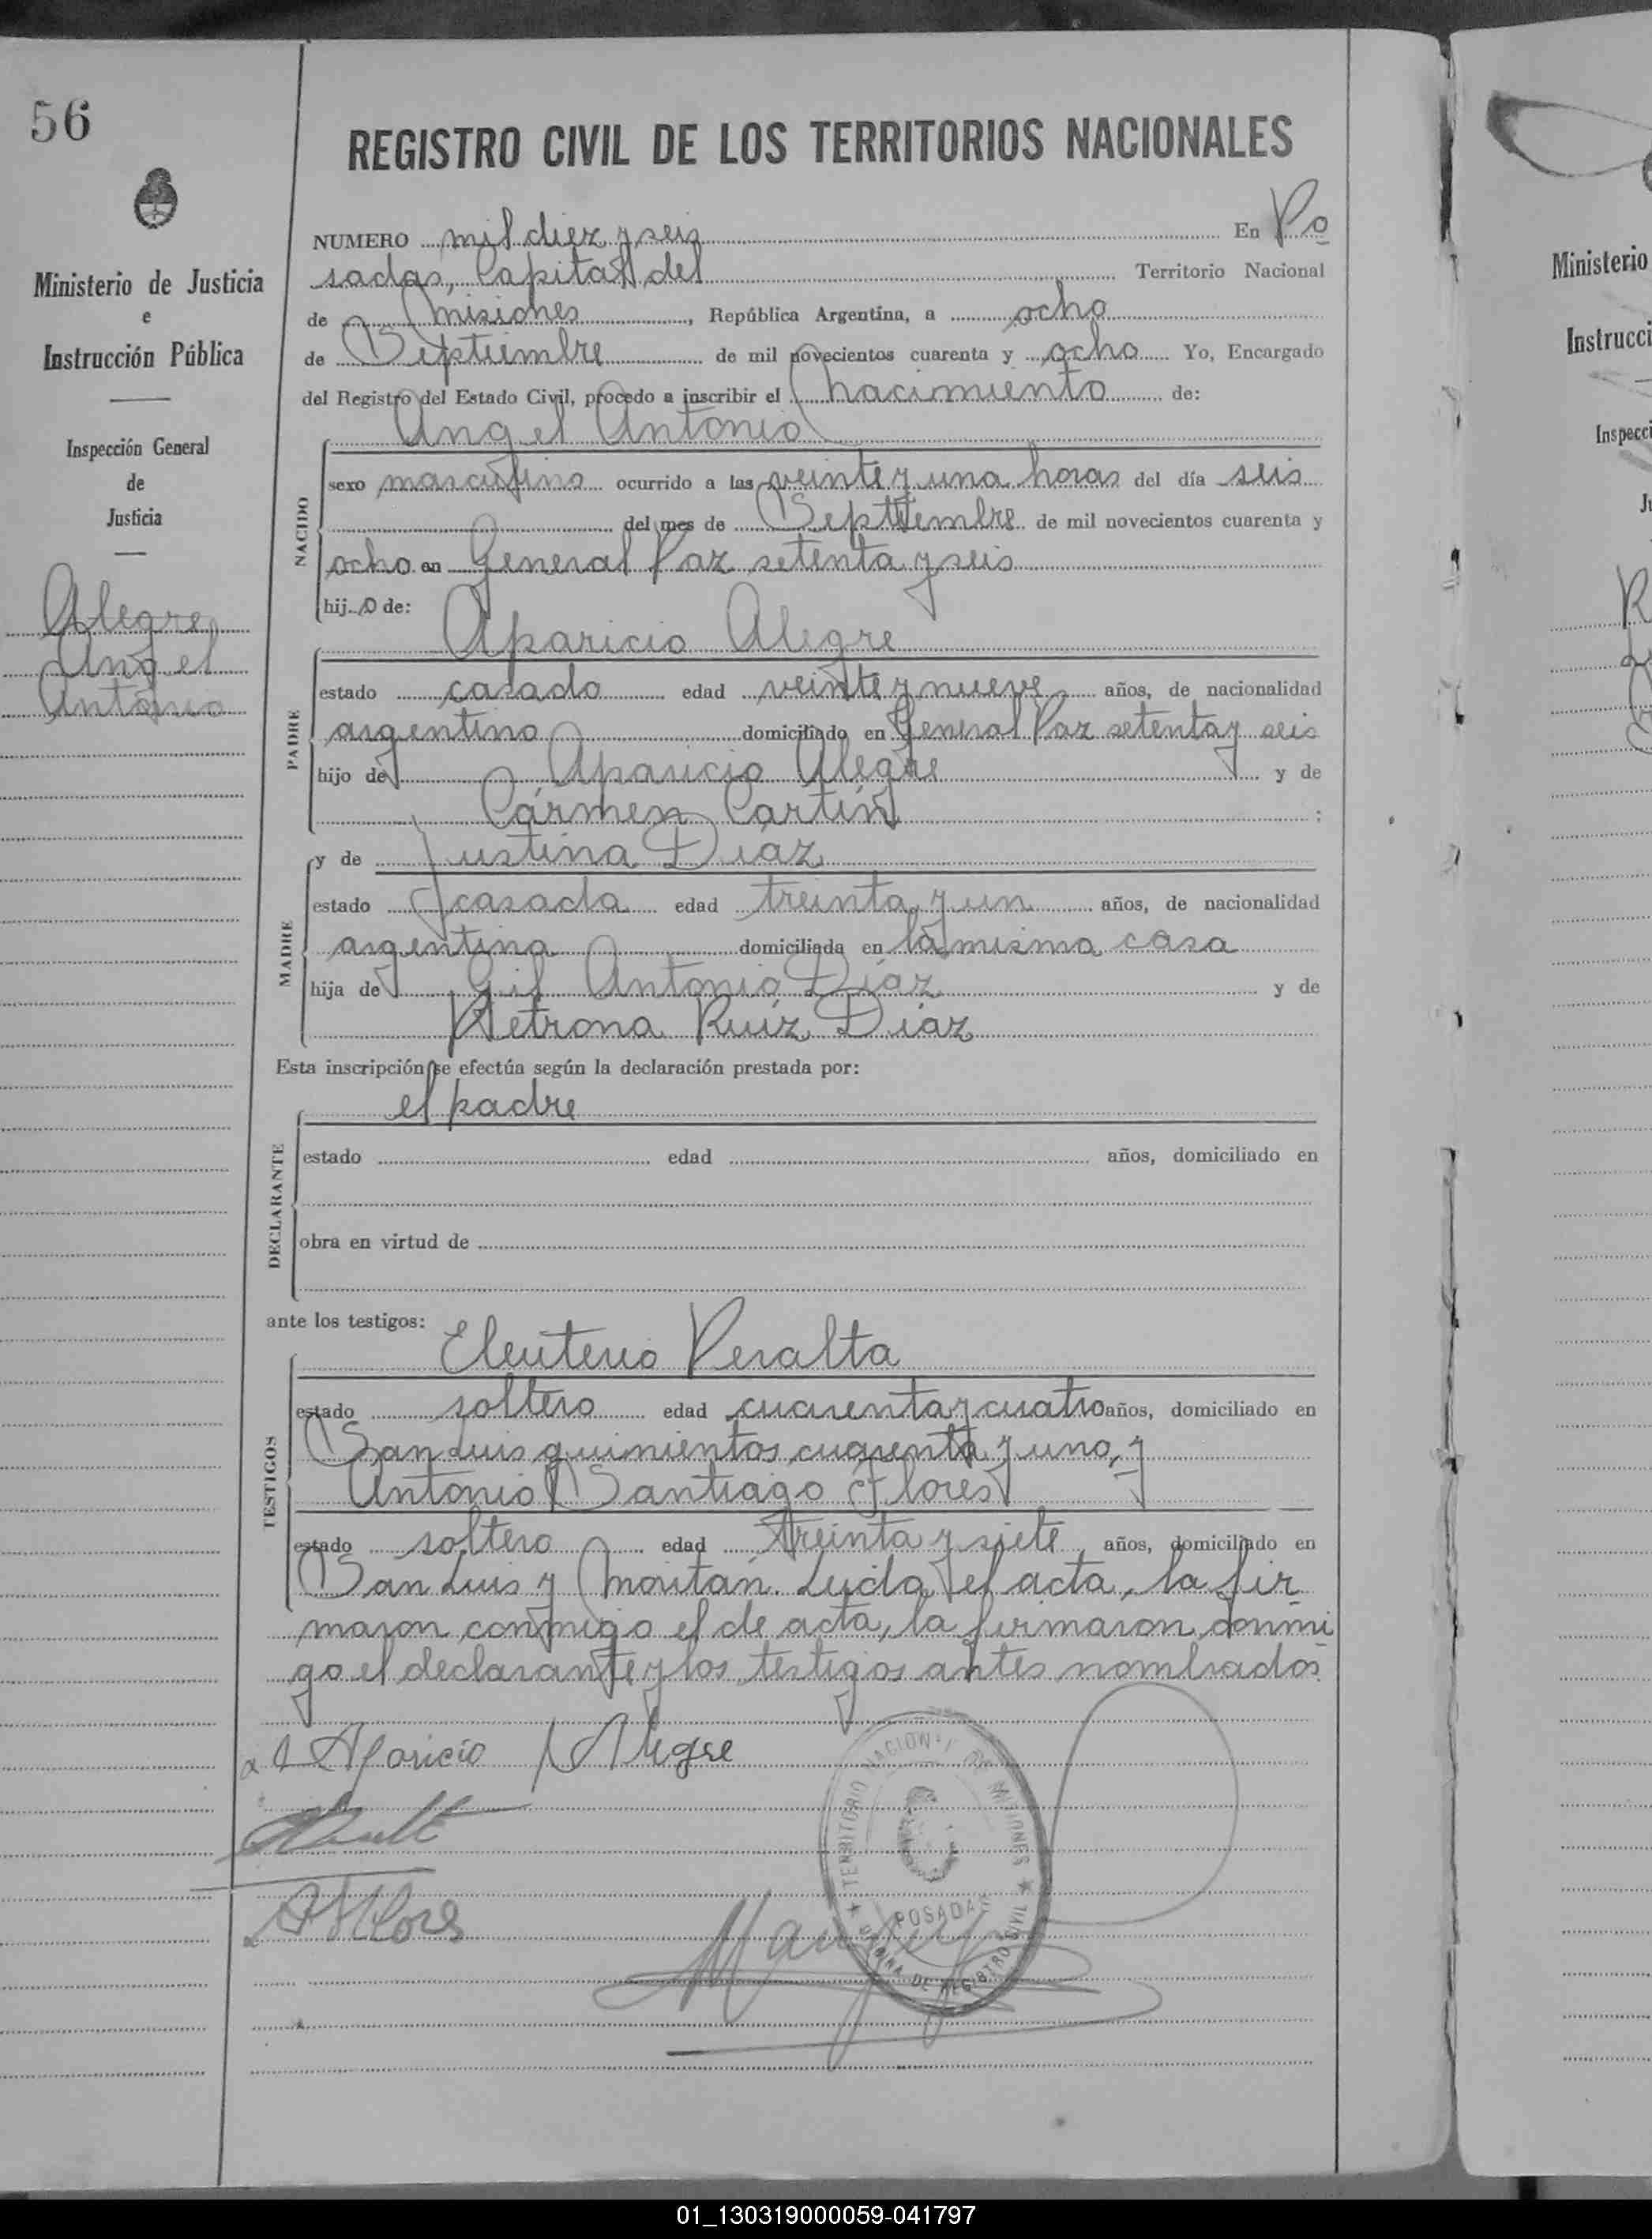 56
Ministerio de Justicia
e
Instrucción Pública
Inspección General
de
Justicia
Alegre
Angel
Antonio
REGISTRO CIVIL DE LOS TERRITORIOS NACIONALES
NUMERO mil diez y seis En Po
sadas, Capital del Territorio Nacional
de Misiones, República Argentina, a ocho
de Septiembre de mil novecientos cuarenta y ocho Yo, Encargado
del Registro del Estado Civil, procedo a inscribir el nacimiento de:
Angel Antonio
NACIDO
sexo masculino ocurrido a las veinte y una horas del día seis
del mes de Septiembre de mil novecientos cuarenta y
ocho en General Paz setenta y seis
hijo de:
Aparicio Alegre
PADRE
estado casado edad veinte y nueve años, de nacionalidad
argentino domiciliado en General Paz setenta y seis
hijo de Aparicio Alegre y de
Cármen Cartín ;
y de Justina Díaz
MADRE
estado casada edad treinta y un años, de nacionalidad
argentina domiciliada en la misma casa
hija de Gil Antonio Díaz y de
Petrona Ruíz Díaz
Esta inscripción se efectúa según la declaración prestada por:
el padre
DECLARANTE
estado edad años, domiciliado en
obra en virtud de
ante los testigos:
Eleuterio Peralta
TESTIGOS
estado soltero edad cuarenta y cuatro años, domiciliado en
San Luis quinientos cuarenta y uno, y
Antonio Santiago Flores
estado soltero edad treinta y siete años, domiciliado en
San Luis y Moritán. Leída el acta, la fir
maron conmigo el de acta, la firmaron conmi
go el declarante y los testigos antes nombrados
Aparicio Alegre
AFlores
TERRITORIO NACIONAL DE MISIONES
POSADAS
OFICINA DE REGISTRO CIVIL
Ministerio
Instrucci
Inspecci
01_130319000059-041797